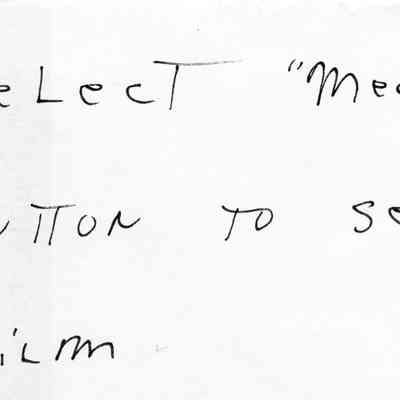 eLecT "Mee
UTTON TO Se
iLm